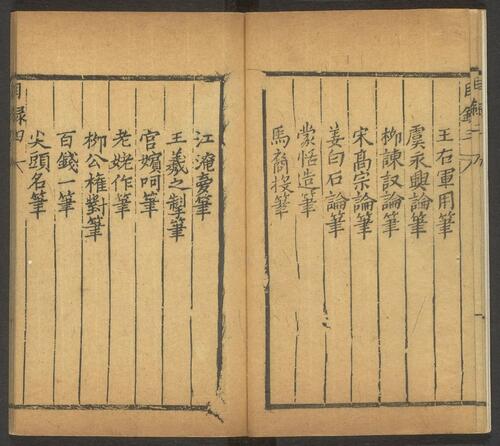 王右軍用筆
虞永興論筆
柳諫議論筆
宋髙宗論筆
姜白石論筆
蒙恬造筆
馬裔授筆
江淹夣筆
王羲之製筆
官嬪呵筆
老姥作筆
柳公權對筆
百錢一筆
尖頭名筆
目録四